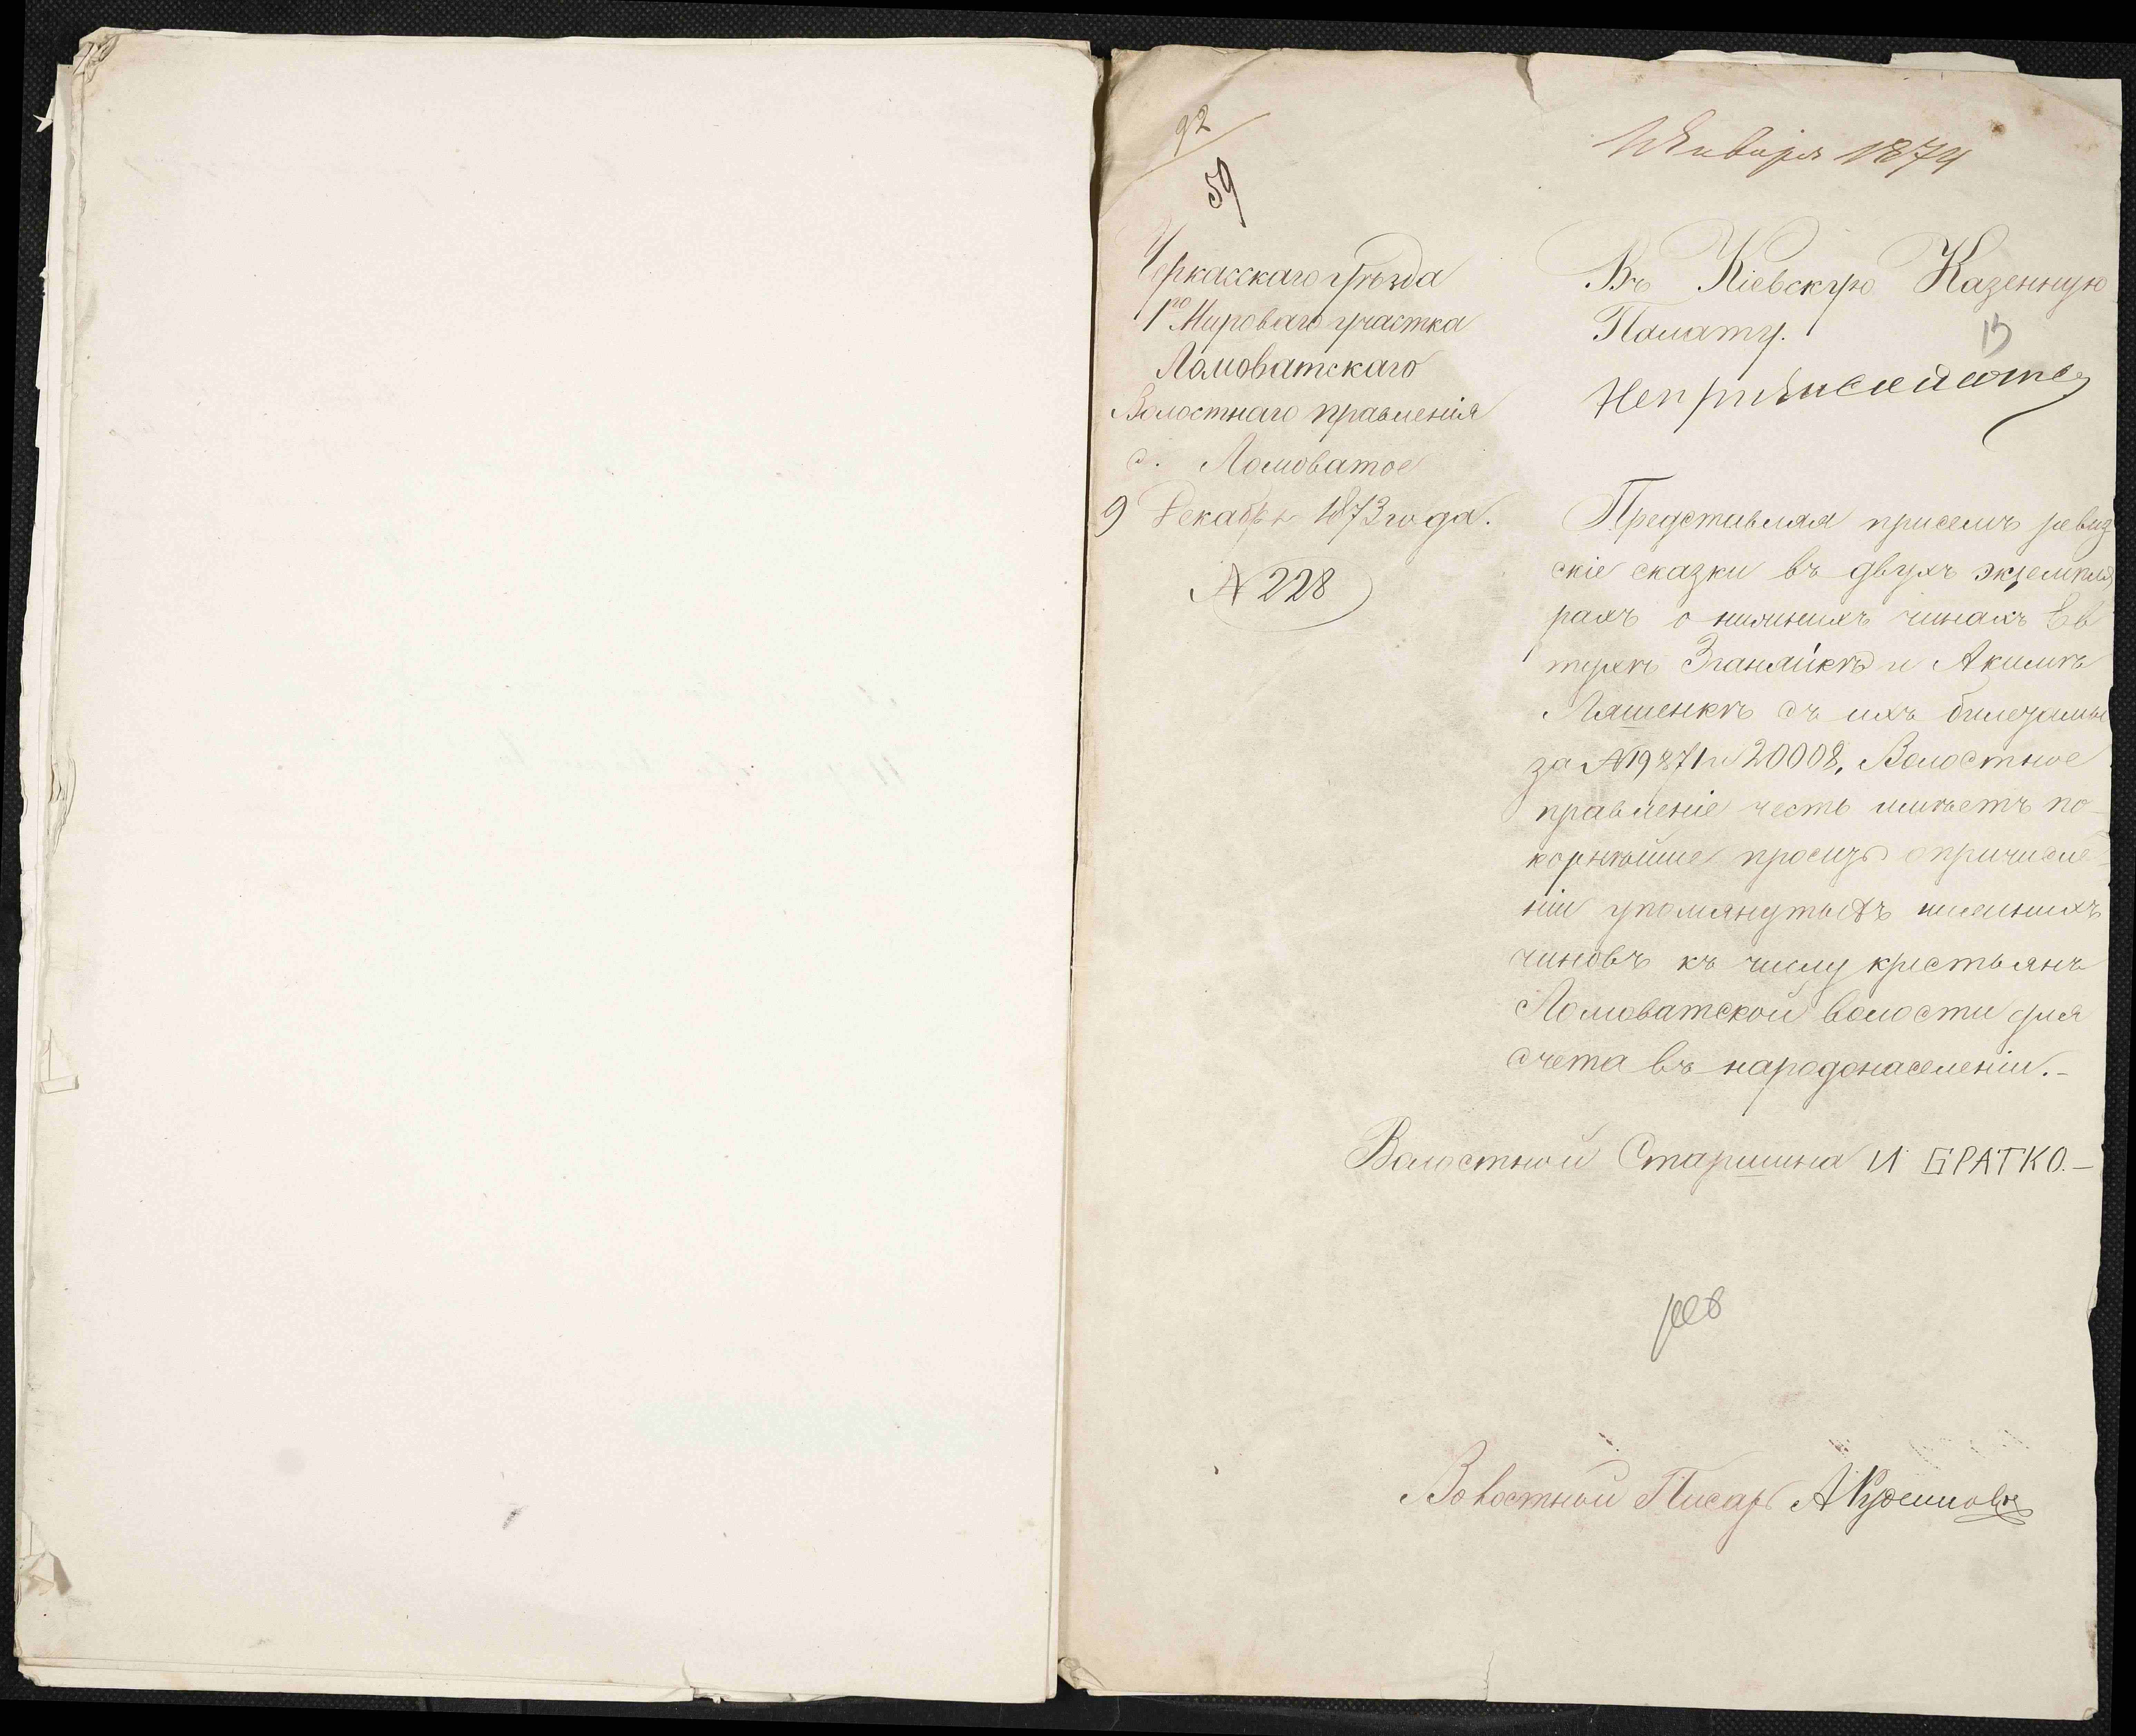 92
59
Января 1874
Черкасскаго уѣзда
1го Мироваго участка
Ломоватскаго
Волостнаго правленія
с. Ломоватое
9 Декабря 1873 года.
№ 228
Въ Кіевскую Казенную
Палату.
Представляя присемъ ревиз
скіе сказки въ двухъ экземпля
рахъ о нижнихъ чинахъ Ев
тухѣ Зганяйкѣ и Акимѣ
Ляшенкѣ съ ихъ билетами
за №19871 и 20008, Волостное
правленіе честь имѣетъ по-
корнѣйше просить о причисле-
ніи упомянутыхъ нижнихъ
чиновъ къ числу крестьянъ
Ломоватской волости для
счета въ народонаселеніи.-
Волостной Старшина И БРАТКО.-
Волостной Писарь